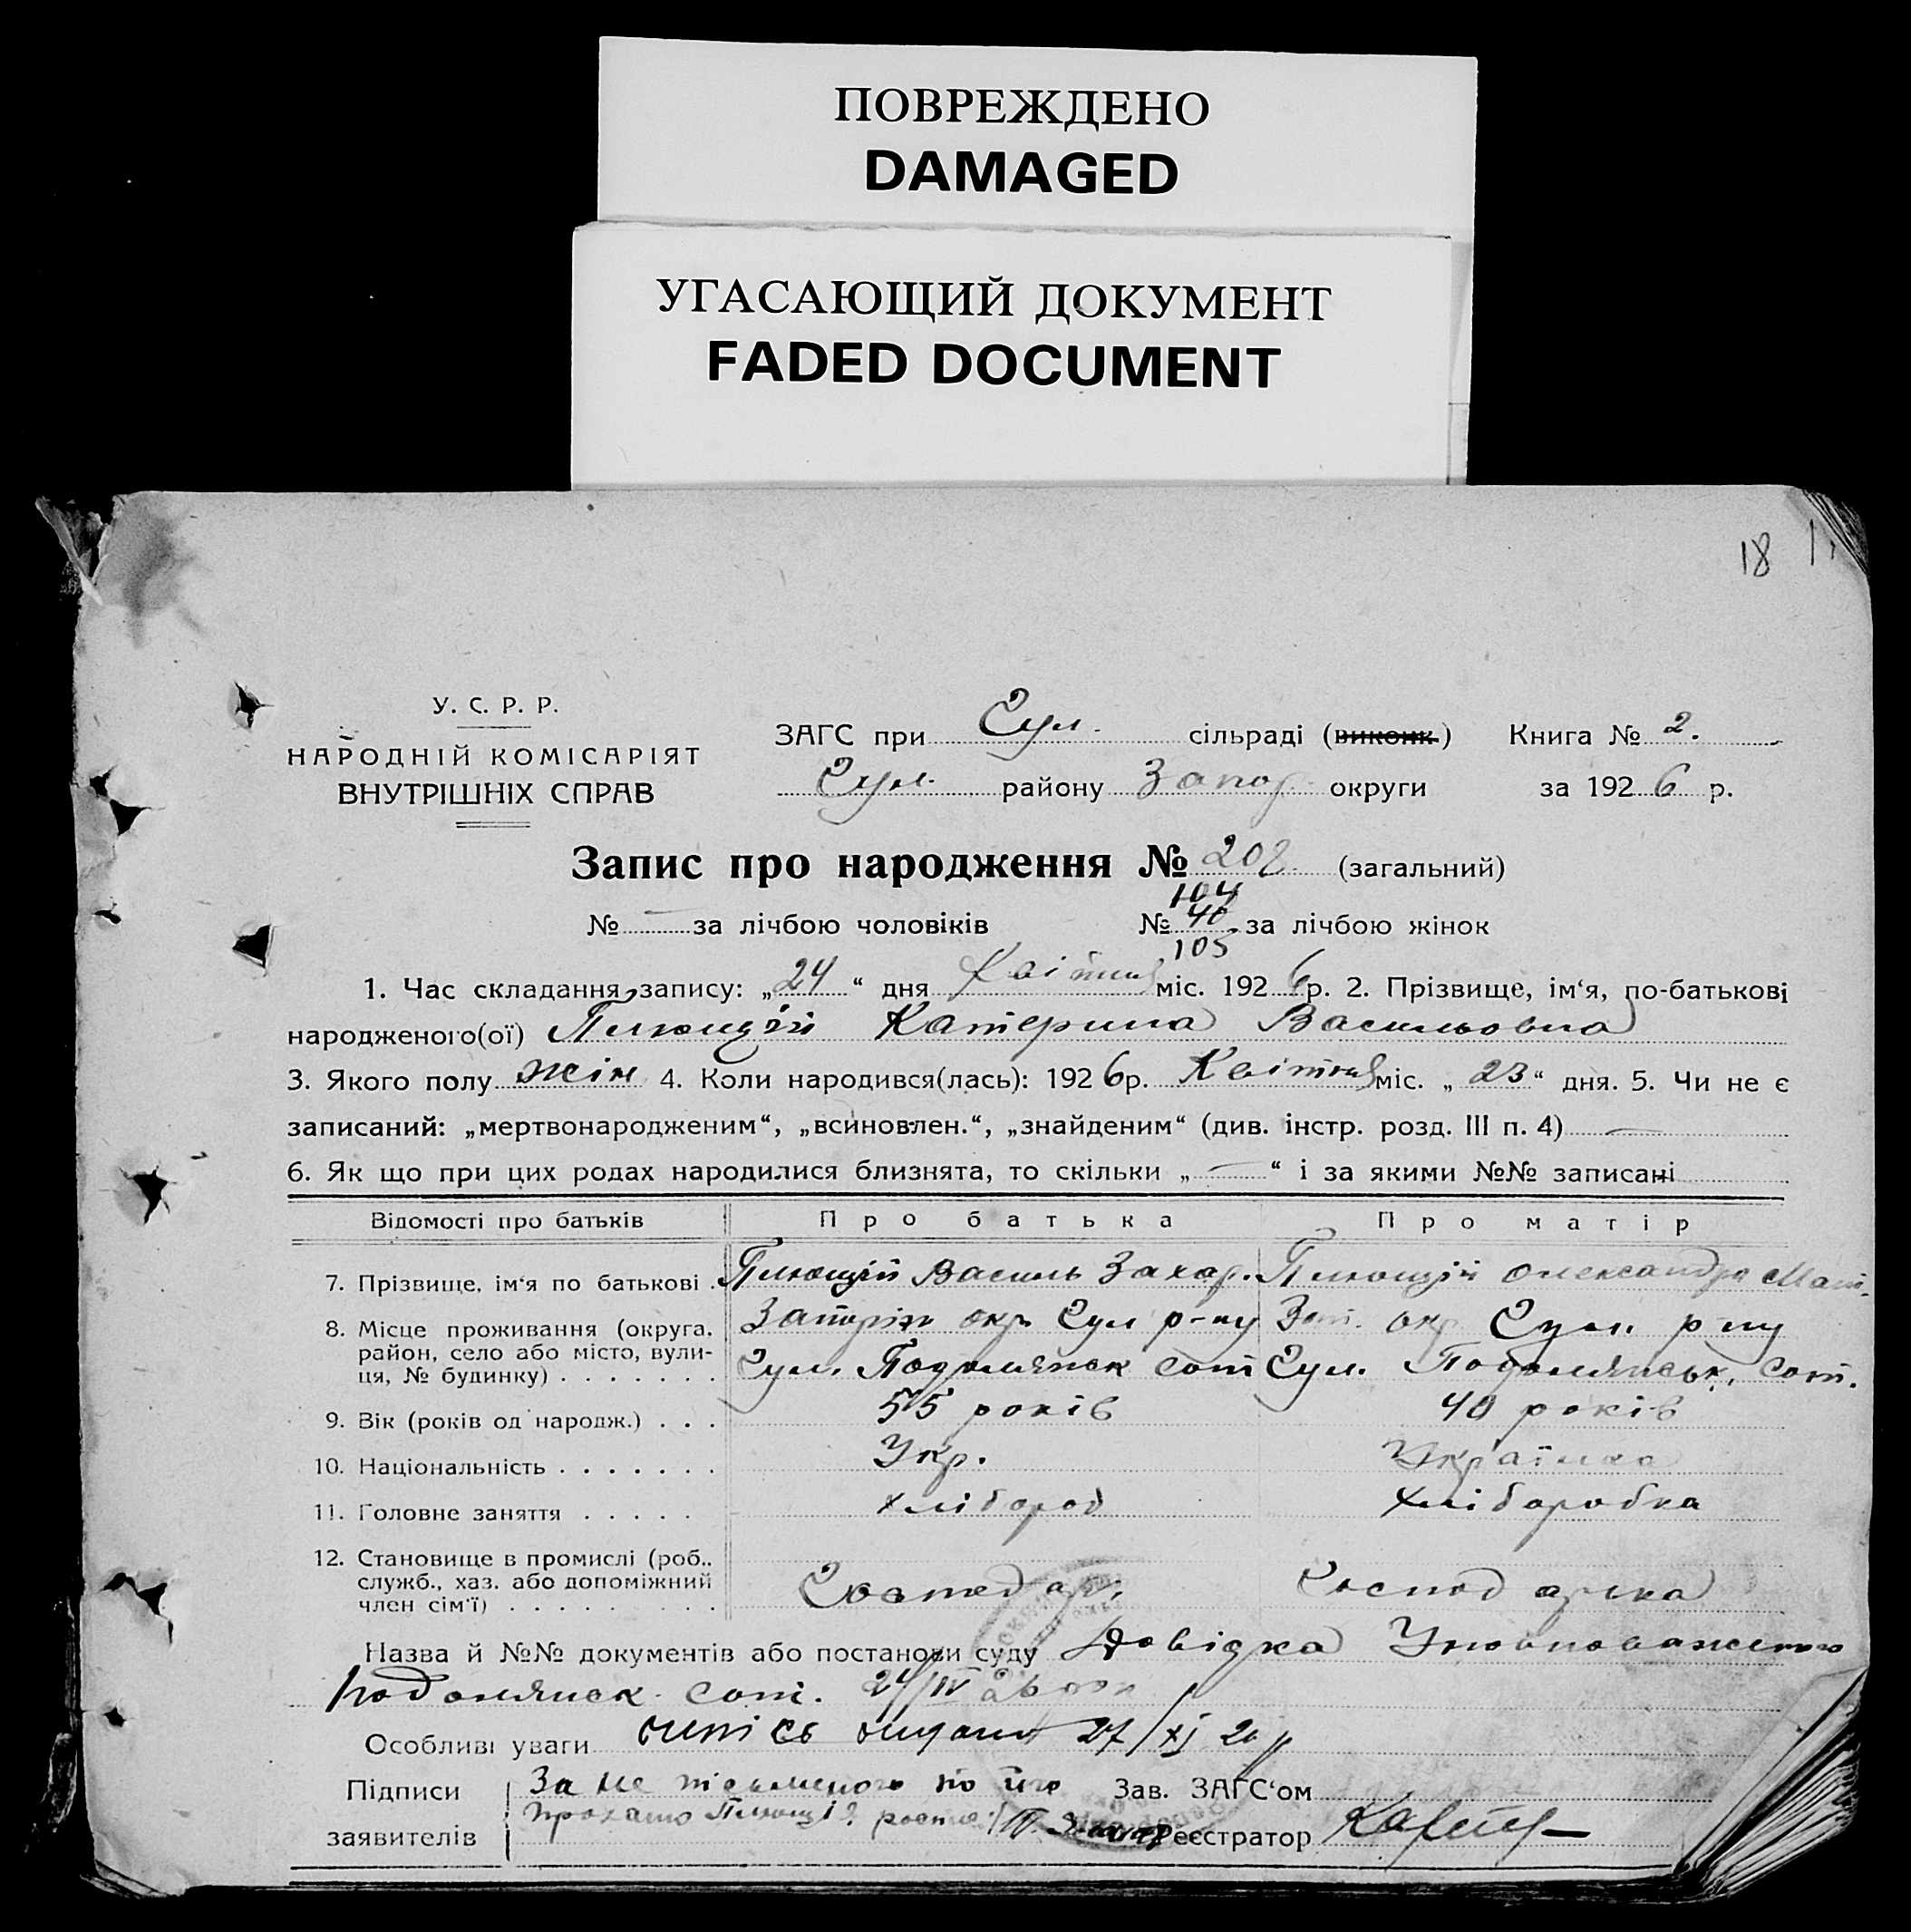 ПОВРЕЖДЕНО
DAMAGED
УГАСАЮЩИЙ ДОКУМЕНТ
FADED DOCUMENT
18
У. С. Р. Р.
НАРОДНІЙ КОМІСАРІЯТ
ВНУТРІШНІХ СПРАВ
ЗАГС при Гул. сільраді (виконк.) Книга № 2.
Гул. району Запор. округи за 1926 р.
Запис про народження № 202 (загальний)
104
№ — за лічбою чоловіків № 40 за лічбою жінок
105
1. Час складання запису: „24“ дня Квітня міс. 1926 р. 2. Прізвище, ім‘я, по-батькові
народженого(ої) Плющій Катерина Васильовна
3. Якого полу жін 4. Коли народився(лась): 1926 р. Квітня міс. „23“ дня. 5. Чи не є
записаний: „мертвонародженим“, „всиновлен.“, „знайденим“ (див. інстр. розд. III п. 4) —
6. Як що при цих родах народилися близнята, то скільки „—“ і за якими №№ записані
Відомості про батьків Про батька Про матір
7. Прізвище, ім‘я по батькові . Плющій Василь Захар. Плющій Олександра Мат.
8. Місце проживання (округа, район, село або місто, вулиця, № будинку) . . . . . . . Запоріж окр. Гул р-ну Зап. окр Гул. р-ну
Гул. Подолянск сот Гул. Подолянськ. сот.
9. Вік (років од народж.) . . . 55 років 40 років
10. Національність . . . . . . . Укр. Українка
11. Головне заняття . . . . . хлібороб хлібаробка
12. Становище в промислі (роб., служб., хаз. або допоміжний член сім‘ї) . . . . . . . . . Господарь Господарка
Назва й №№ документів або постанови суду Довідка Уповноваженого
Подолянск. сот. 24/IV 26
Особливі уваги 27/XI 26 р
Підписи За не письменого по його Зав. ЗАГС‘ом
заявителів прохано Реєстратор